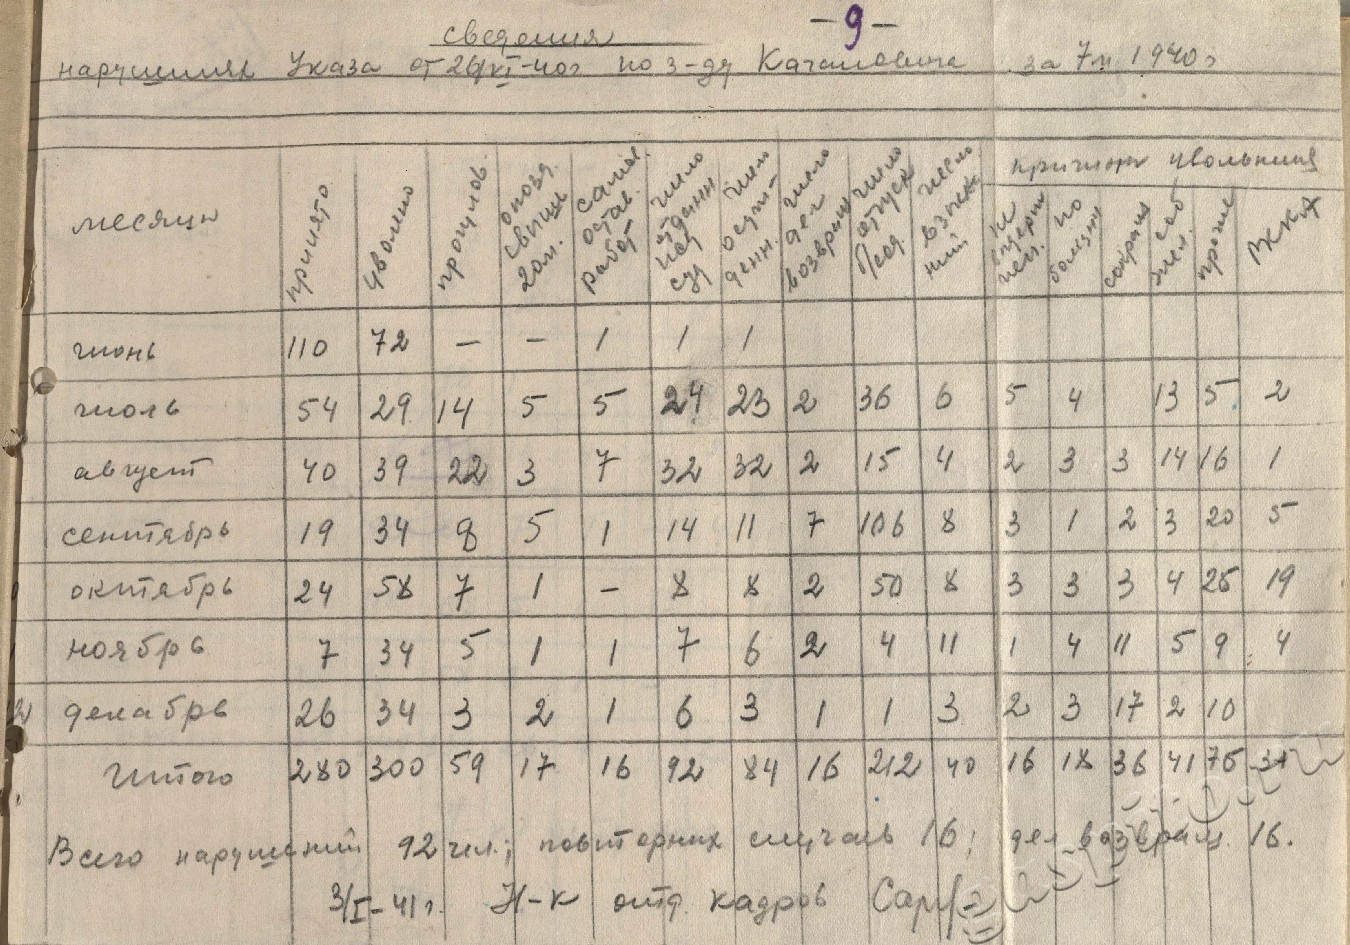 -9-
сведения
нарушениях Указа от 26/VI-40г по з-ду Кагановича за 7м 1940г
месяцы принято уволено прогулов. опозд. свыше 20м. самов. остав. работ число отданн. под суд число осуж-денн. число дел возвращ число отпуск б/сод. число взыска-ний причины увольнения
по болезни сокращ прочие РККА
июнь 110 72 — — 1 1 1
июль 54 29 14 5 5 24 23 2 36 6 5 4 13 5 2
август 40 39 22 3 7 32 32 2 15 4 2 3 3 14 16 1
сентябрь 19 34 8 5 1 14 11 7 106 8 3 1 2 3 20 5
октябрь 24 58 7 1 — 8 8 2 50 8 3 3 3 4 25 19
ноябрь 7 34 5 1 1 7 6 2 4 11 1 4 11 5 9 4
декабрь 26 34 3 2 1 6 3 1 1 3 2 3 17 2 10
Итого 280 300 59 17 16 92 84 16 212 40 16 18 36 41 75 31
Всего нарушений 92 чел.; повторных случаев 16; дел возвращ. 16.
3/I-41г. Н-к отд. кадров